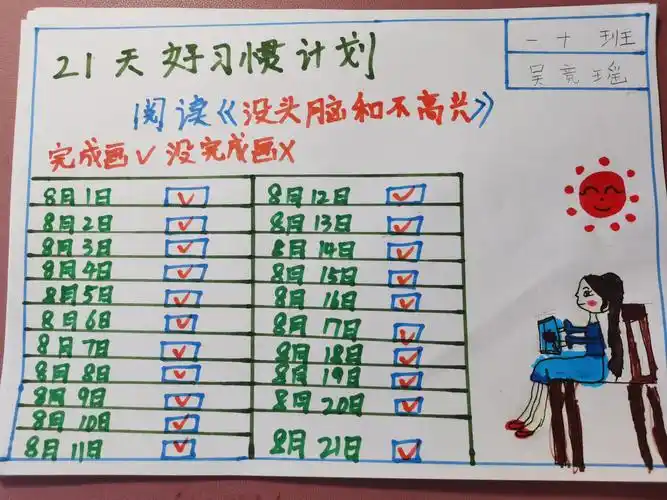 21天好习惯计划
一十班
吴竟瑶
阅读《没头脑和不高兴》
完成画√没完成画X
8月1日 √
8月2日 √
8月3日 √
8月4日 √
8月5日 √
8月6日 √
8月7日 √
8月8日 √
8月9日 √
8月10日 √
8月11日 √
8月12日 √
8月13日 √
8月14日 √
8月15日 √
8月16日 √
8月17日 √
8月18日 √
8月19日 √
8月20日 √
8月21日 √